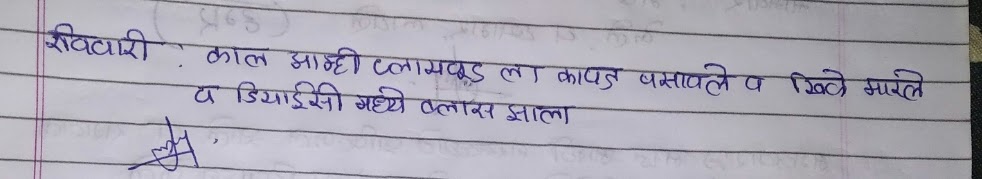 रविवारी : काल आम्ही प्लायवूड ला कापड बसावले व खिळे मारले
व डियाईसी मध्ये क्लास झाला